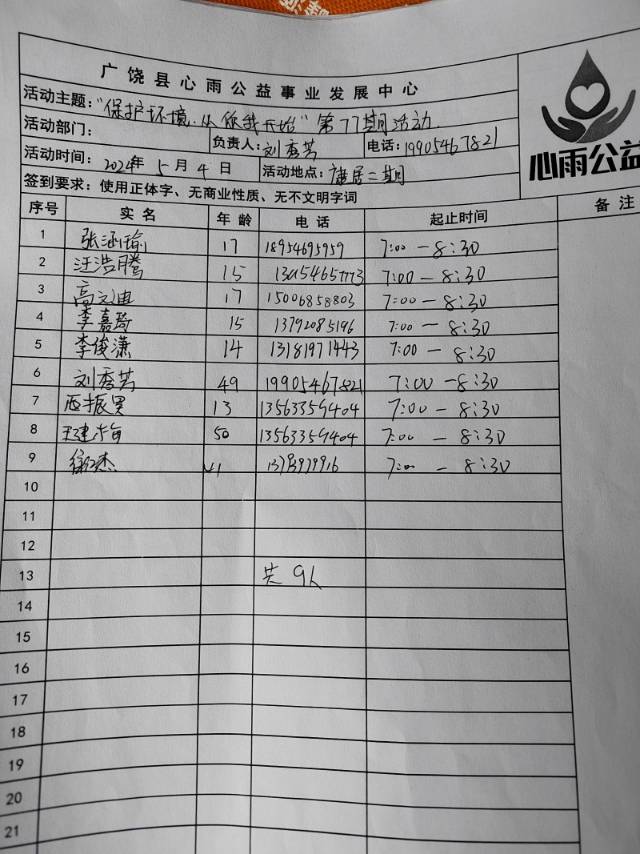 广饶县心雨公益事业发展中心
活动主题：“保护环境·从你我开始”第77期活动
活动部门： 负责人：刘秀芳 电话：19905467821
活动时间：2024年5月4日 活动地点：康居二期
签到要求：使用正体字、无商业性质、无不文明字词
心雨公益
序号 实名 年龄 电话 起止时间 备注
1 张涵瑜 17 18954695959 7:00-8:30
2 汪浩腾 15 7:00-8:30
3 高文迪 17 15006858803 7:00-8:30
4 李嘉琦 15 13792085196 7:00-8:30
5 李俊潇 14 13181971443 7:00-8:30
6 刘秀芳 49 19905467821 7:00-8:30
7 13 13563359404 7:00-8:30
8 50 13563359404 7:00-8:30
9 7:00-8:30
10
11
12
13 共9人
14
15
16
17
18
19
20
21